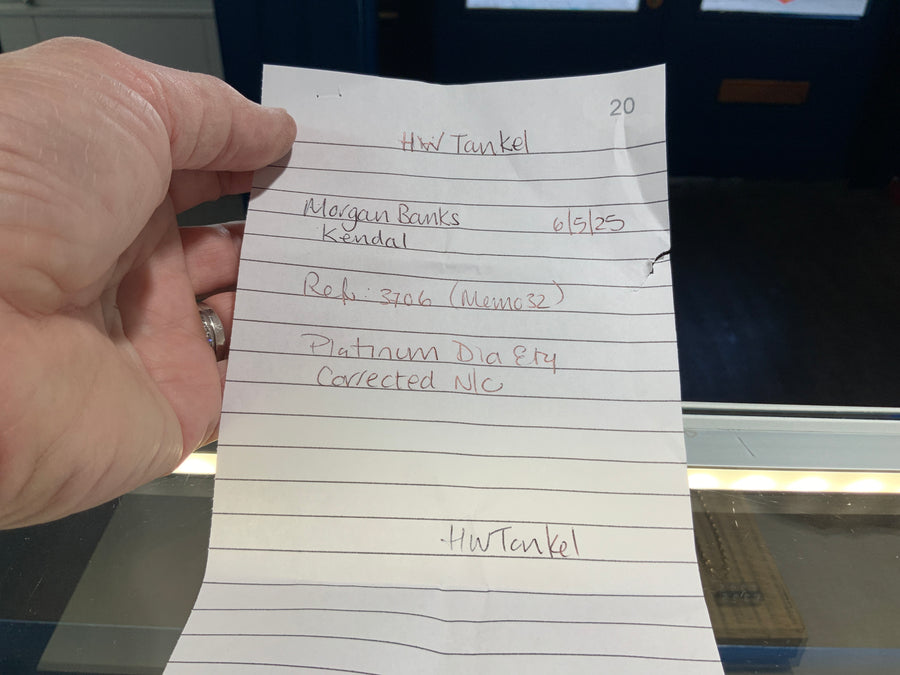 20
HW Tankel
Morgan Banks 6/5/25
Kendal
Ref: 3706 (Memo32)
Platinum Dia Ety
Corrected N/C
HWTankel